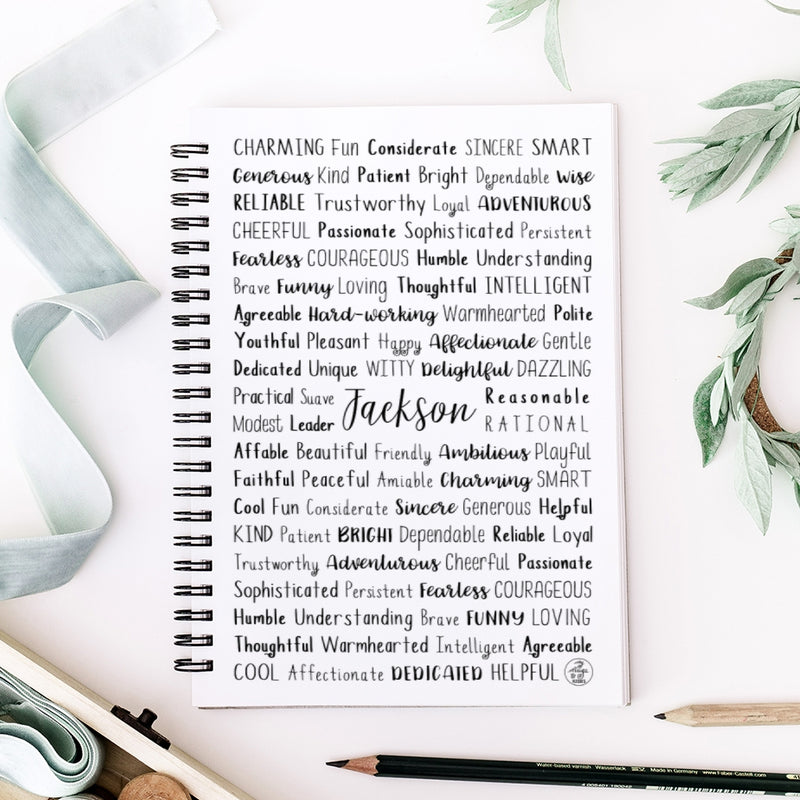 CHARMING Fun Considerate SINCERE SMART
Generous Kind Patient Bright Dependable Wise
RELIABLE Trustworthy Loyal ADVENTUROUS
CHEERFUL Passionate Sophisticated Persistent
Fearless COURAGEOUS Humble Understanding
Brave Funny Loving Thoughtful INTELLIGENT
Agreeable Hard-working Warmhearted Polite
Youthful Pleasant Happy Affectionate Gentle
Dedicated Unique WITTY Delightful DAZZLING
Practical Suave
Modest Leader
Jackson
Reasonable
RATIONAL
Affable Beautiful Friendly Ambitious Playful
Faithful Peaceful Amiable Charming SMART
Cool Fun Considerate Sincere Generous Helpful
KIND Patient BRIGHT Dependable Reliable Loyal
Trustworthy Adventurous Cheerful Passionate
Sophisticated Persistent Fearless COURAGEOUS
Humble Understanding Brave FUNNY LOVING
Thoughtful Warmhearted Intelligent Agreeable
COOL Affectionate DEDICATED HELPFUL
Water-based varnish Wasserlack Made in Germany www.Faber-Castell.com